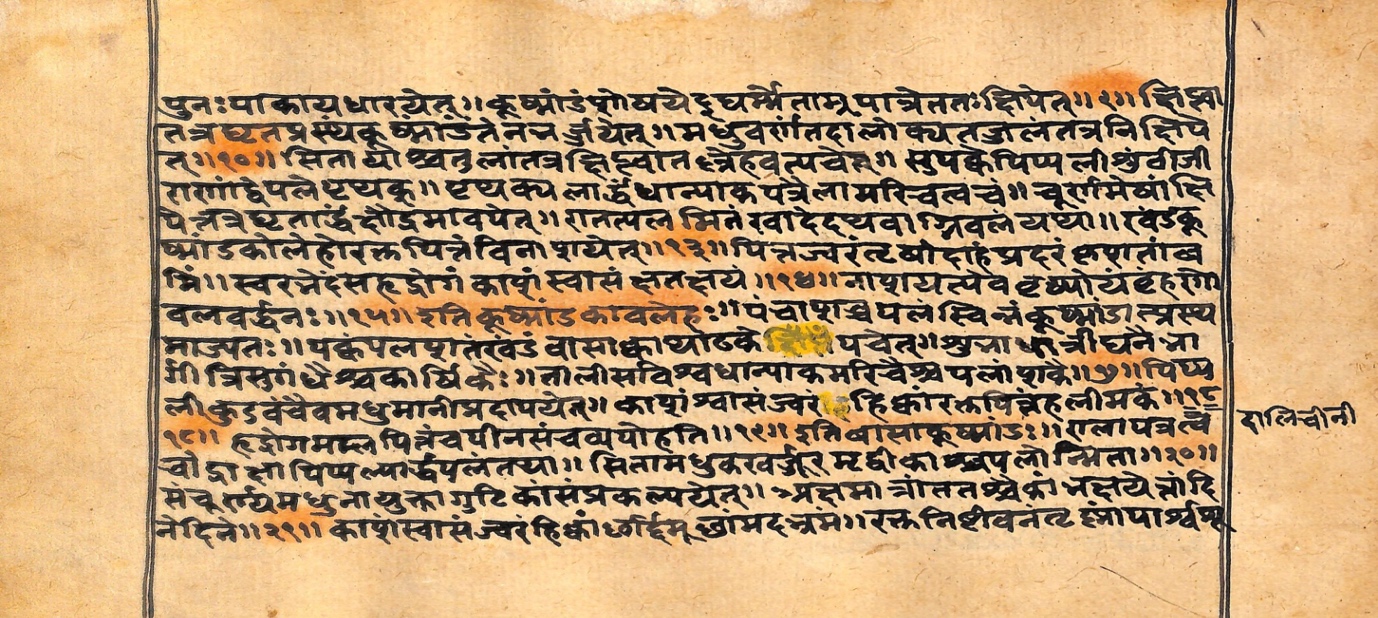 पुनःपाकायधारयेत्॥कूष्मांडंशोषयेद्घर्मेताम्रपात्रेततःक्षिपेत्॥९॥क्षिप्त्वा
तत्रघृतप्रस्थंकूष्मांडंतेनभर्ज्जयेत्॥मधुवर्णंतदालोक्यतज्जलंतत्रनिक्षिपे
त्॥१०॥सितायाश्चतुलांतत्रक्षिप्त्वातल्लेहवत्पचेत्॥सुपक्वेपिप्पलीशुंठीजी
राणांद्वेपलेपृथक्॥पृथक्पलार्द्धंधान्याकपत्रैलामरिचत्वचं॥चूर्णमेषांक्षि
पेत्तत्रघृतार्द्धंक्षौद्रमावपेत्॥रातत्पलमितंखादेदथवाग्निबलंयथा॥खंडकू
ष्मांडकोलेहोरक्तपित्तंविनाशयेत्॥१३॥पित्तज्वरंतृषांदाहंप्रदरंकृशतांव
मिं॥स्वरभेदंसहृद्रोगंकाशंस्वासंक्षतक्षयं॥१४॥नाशयत्येववृष्योयंबृंहणो
बलवर्द्धनः॥१५॥इतिकूष्मांडकावलेहः॥पंचाशच्चपलंस्विन्नंकूष्मांडात्प्रस्थ
माज्यतः॥पक्वंपलशतंखंडंवासाक्वाथाढकेपचेत्॥शुभाधात्रीघनैर्भा
र्गीत्रिसुगंधैश्चकार्षिकैः॥तालीसविश्वधान्याकमरिचैश्चपलांशकैः॥७॥पिप्प
लीकुडवंचैवमधुमानीप्रदापयेत्॥काशंश्वासंज्वरंहिक्कांरक्तपित्तंहलीमकं॥१८
१८॥हृद्रोगमम्लपित्तंचपीनसंचव्यपोहति॥१९॥इतिवासाकूष्मांडः॥रालापत्रत्व
चोद्राक्षापिप्पल्यार्द्धपलंतथा॥सितामधुकखर्जूरमृद्वीकाश्चपलोन्मिता॥२०॥
संचूर्ण्यमधुनायुक्तागुटिकांसंप्रकल्पयेत्॥अक्षमात्रांततश्चैकांभक्षयेन्नांदि
नेदिने॥२१॥काशंस्वासंज्वरंहिक्कांछर्दिमूर्छांमदभ्रमं॥रक्तनिष्ठीवनंतृष्णापार्श्वशू
दालिचीनी